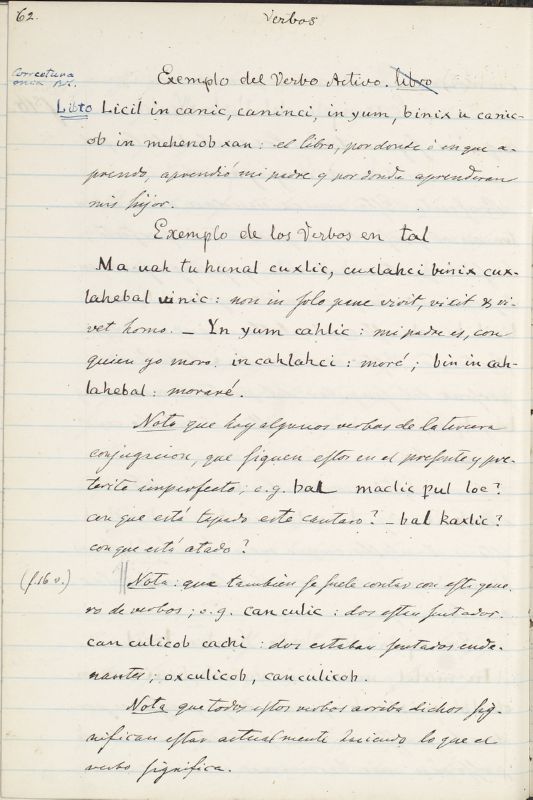 62.
Verbos
Exemplo del Verbo Activo. libro
Correctura
onica pr.
Libro Licil in canic, caninci, in yum, binix u canic-
ob in mehenob xan: el libro, por donde ó en que a-
prendo, aprendió mi padre y por donde aprenderan
mis hijos.
Exemplo de los Verbos en tal
Ma uah tu hunal cuxlic, cuxlahci binix cux-
lahebal uinic: non in solo pane vivit, vixit & vi-
vet homo. _ Yn yum cahlic: mi padre es, con
quien yo moro. in cahlahci: moré; bin in cah-
lahebal: moraré.
Nota que hay algunos verbos de la tercera
conjugacion, que siguen estos en el presente y pre-
terito imperfecto; e.g. bal maclic pul loe?
con que está tapado este cantaro? _ bal kaxlic?
con que está atado?
(f.16 v.)
Nota: que tambien se suele contar con este gene-
ro de verbos; e.g. canculic: dos estan sentados.
can culicob cachi: dos estaban sentados ende-
nantes; oxculicob, canculicob.
Nota que todos estos verbos arriba dichos sig-
nifican estar actualmente haciendo lo que el
verbo significa.